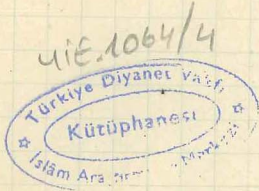 4İE.1064/4
Türkiye Diyanet Vakfı
Kütüphanesi
İslâm Ara